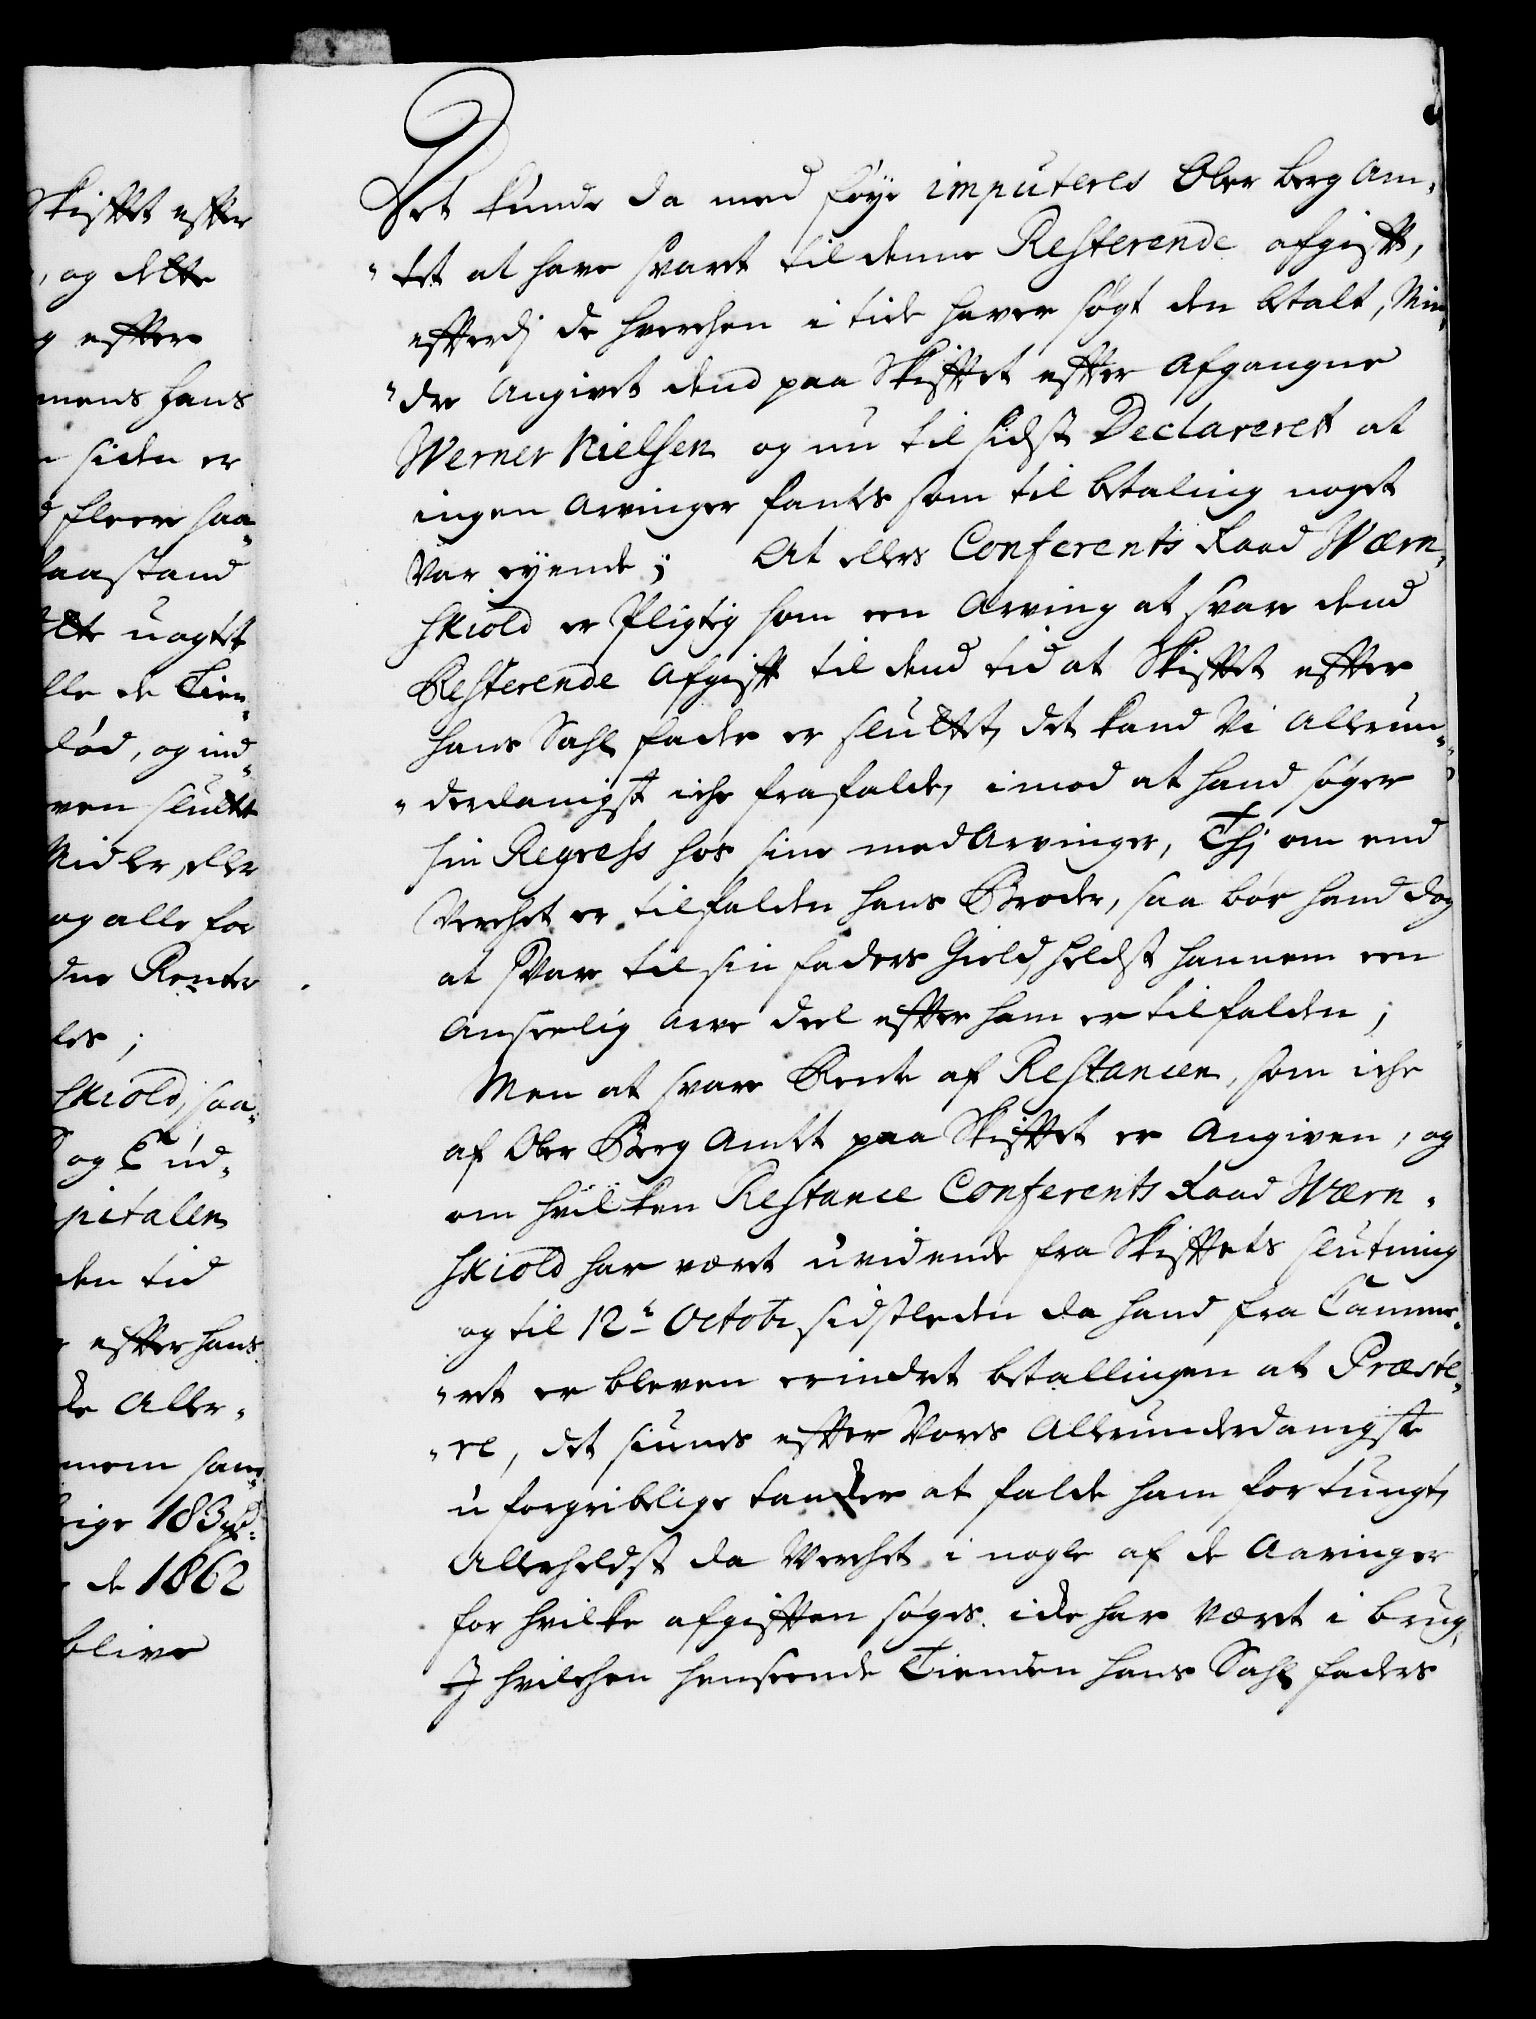 Skifftet effter
, og dette
g effter
mens hans
n siden er
d fleere saa„
paastand
dette uagtet
lle de Tien„
død, og ind„
ven sluttet
Midler, eller
og alle for
dne Renter
les ;
skiold, saa„
og End„
pitalen
den tid
r effter hans
de Aller„
mem sam„
rige 183 rd:
r de 1862
blive
Det kunde da med føye imputeres Ober Berg Am„
„tet at have svaret til denne Resterende afgifft,
efftterdj de hverchen i tide haver søgt den betalt, Min„
„dre Angivet dend paa Skifftet effter Afgangne
Werner Nielsen og nu til sidst Declareret at
ingen Arvinger fantes som til betaling noget
var eyende; At ellers Conferents Raad Wærn„
skiold er Pligtig som een Arving at svare dend
Resterende Afgifft til dend tid at Skifftet effter
hans Sahl: fader er sluttet, det kand Vi Allerun„
„derdanigst iche frafalde, imod at hand søger
sin Regress hos sine medArvinger, Thj om end
Verchet er tilfalden hans Broder, saa bør hand dog
at svare til sin faders Gield, helst hannem een
Anseelig Arve deel effter ham er tilfalden;
Men at svare Rente af Restancen, som iche
af Ober Berg Amtet paa Skifftet er Angiven, og
om hvilken Restance Conferents Raad Wærn„
skiold har været uvidende fra Skifftets slutning
og til 12te Octobr: sidstleden da hand fra Cammer„
„ret er bleven erindret betallingen at Præste„
„re, det siunes effter Vores Allerunderdanigste
uforgribelige tancker at falde ham for tungt,
Allerhelst da Verchet i nogle af de Aaringer
for hvilke afgifften søges iche har været i brug,
I hvilchen henseende Tienden hans Sahl: faders